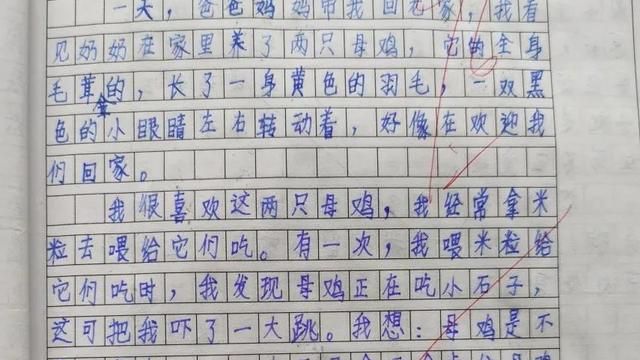 一天，爸爸妈妈带我回老家，我看
见奶奶在家里养了两只母鸡，它的全身
毛茸茸的，长了一身黄色的羽毛，一双黑
色的小眼睛左右转动着，好像在欢迎我
们回家。
我很喜欢这两只母鸡，我经常拿米
粒去喂给它们吃。有一次，我喂米粒给
它们吃时，我发现母鸡正在吃小石子，
这可把我吓了一大跳。我想：母鸡是不